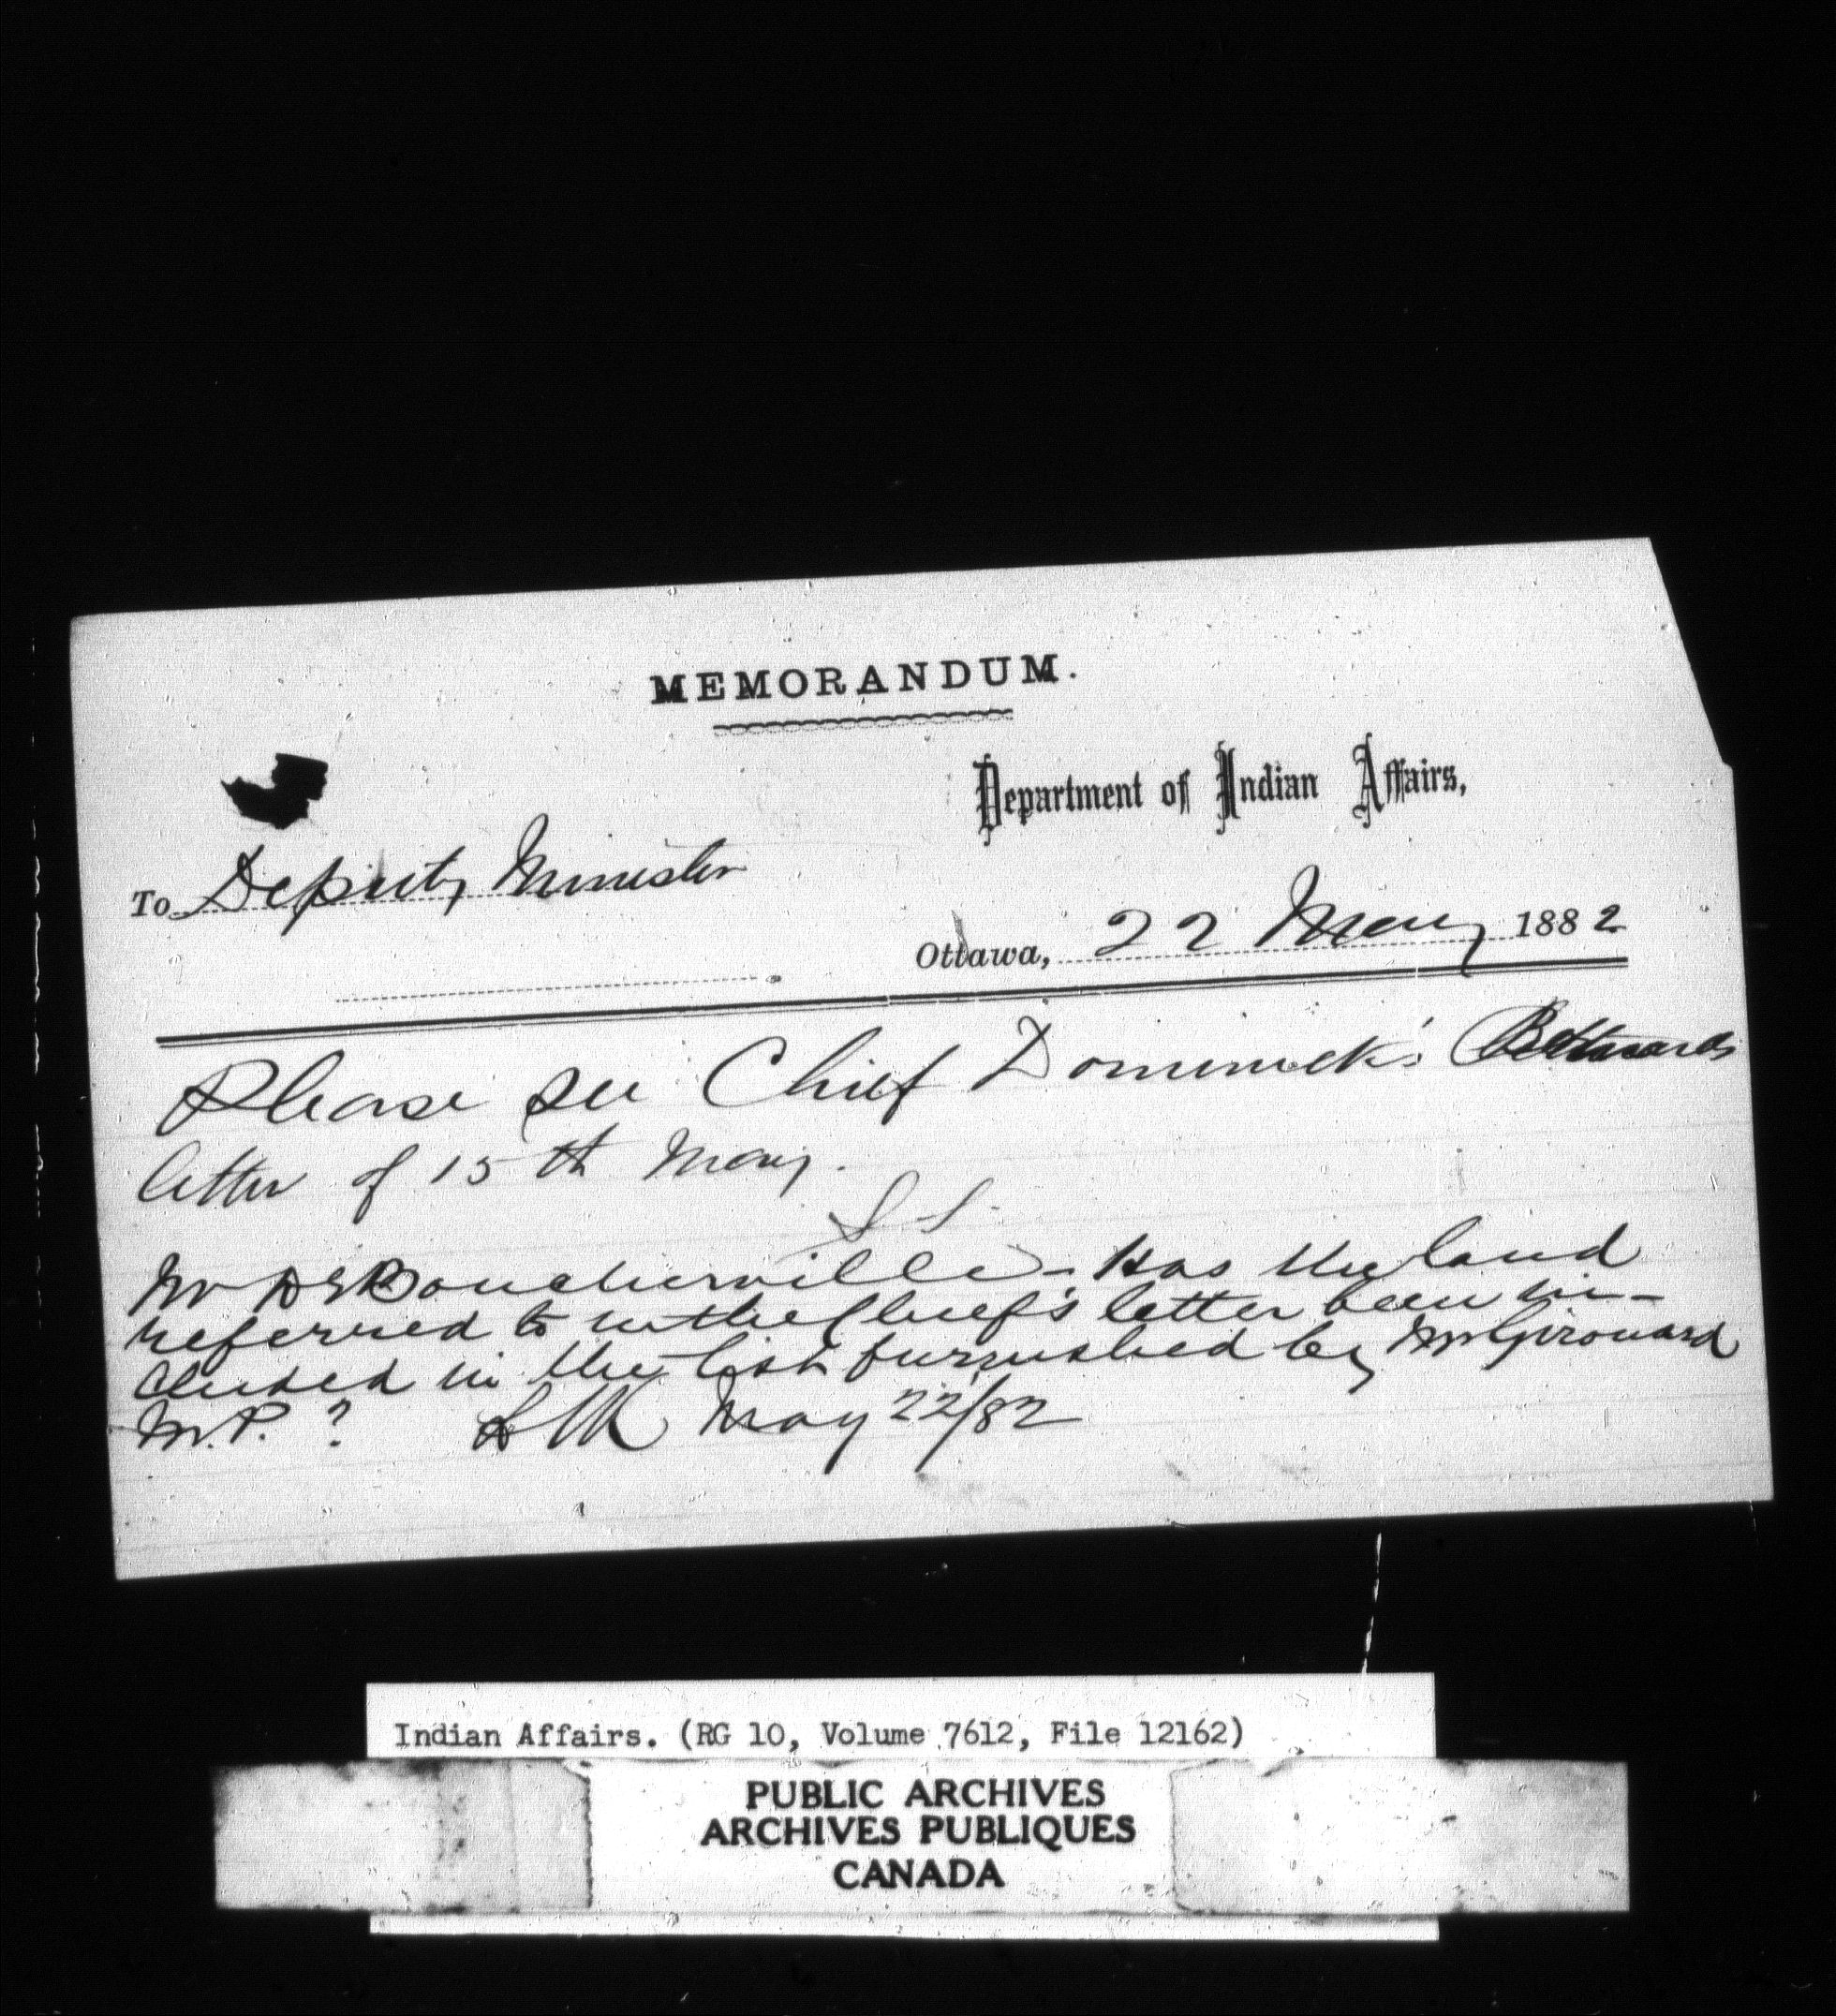 MEMORANDUM.
Department of Indian Affairs,
To Deputy Minister
Ottawa, 22 May 1882
Please see Chief Dominick's
letter of 15th May.
Mr DeBoucherville - Has the land
referred to in the Chief's letter been in-
cluded in the list furnished by Mr Girouard
M.P. ? May 22/82
Indian Affairs. (RG 10, Volume 7612, File 12162)
PUBLIC ARCHIVES
ARCHIVES PUBLIQUES
CANADA